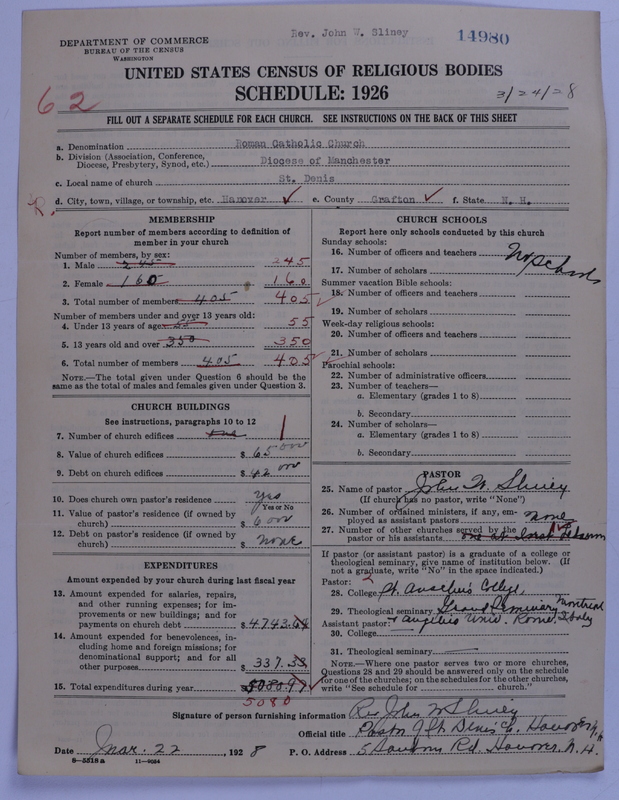 Rev. John W. Sliney
14980
DEPARTMENT OF COMMERCE
BUREAU OF THE CENSUS
WASHINGTON
UNITED STATES CENSUS OF RELIGIOUS BODIES
SCHEDULE: 1926
62
3/24/28
FILL OUT A SEPARATE SCHEDULE FOR EACH CHURCH. SEE INSTRUCTIONS ON THE BACK OF THIS SHEET
a. Denomination Roman Catholic Church
b. Division (Association, Conference, Diocese, Presbytery, Synod, etc.) Diocese of Manchester
c. Local name of church St. Denis
R.
d. City, town, village, or township, etc. Hanover e. County Grafton f. State N. H.
MEMBERSHIP
Report number of members according to definition of
member in your church
Number of members, by sex:
1. Male 245 245
2. Female 160 160
3. Total number of members 405 405
Number of members under and over 13 years old:
4. Under 13 years of age 55 55
5. 13 years old and over 350 350
6. Total number of members 405 405
NOTE.—The total given under Question 6 should be the
same as the total of males and females given under Question 3.
CHURCH BUILDINGS
See instructions, paragraphs 10 to 12
7. Number of church edifices one 1
8. Value of church edifices $ 65000
9. Debt on church edifices $ 42000
10. Does church own pastor's residence Yes
Yes or No
11. Value of pastor's residence (if owned by
church) $ 6000
12. Debt on pastor's residence (if owned by
church) $ none
EXPENDITURES
Amount expended by your church during last fiscal year
13. Amount expended for salaries, repairs,
and other running expenses; for im-
provements or new buildings; and for
payments on church debt $ 4743.64
14. Amount expended for benevolences, in-
cluding home and foreign missions; for
denominational support; and for all
other purposes $ 337.33
15. Total expenditures during year $ 5080.97
5080
CHURCH SCHOOLS
Report here only schools conducted by this church
Sunday schools:
16. Number of officers and teachers No schools
17. Number of scholars
Summer vacation Bible schools:
18. Number of officers and teachers
19. Number of scholars
Week-day religious schools:
20. Number of officers and teachers
21. Number of scholars
Parochial schools:
22. Number of administrative officers
23. Number of teachers—
a. Elementary (grades 1 to 8)
b. Secondary
24. Number of scholars—
a. Elementary (grades 1 to 8)
b. Secondary
PASTOR
25. Name of pastor John W. Sliney
(If church has no pastor, write "None")
26. Number of ordained ministers, if any, em-
ployed as assistant pastors None
27. Number of other churches served by the
pastor or his assistants one at West Lebanon
If pastor (or assistant pastor) is a graduate of a college or
theological seminary, give name of institution below. (If
not a graduate, write "No" in the space indicated.)
Pastor: 2
28. College St. Anselm's College,
29. Theological seminary Grand Seminary Montreal
Assistant pastor: + Angelico Univ. Rome, Italy
30. College
31. Theological seminary
NOTE.—Where one pastor serves two or more churches,
Questions 28 and 29 should be answered only on the schedule
for one of the churches; on the schedules for the other churches,
write "See schedule for church."
Signature of person furnishing information Rev John W Sliney
Official title Pastor of St. Denis C, Hanover N.H
Date Mar. 22, 1928 P. O. Address Sanborn Rd. Hanover, N. H.
8—5518 a 11—9064